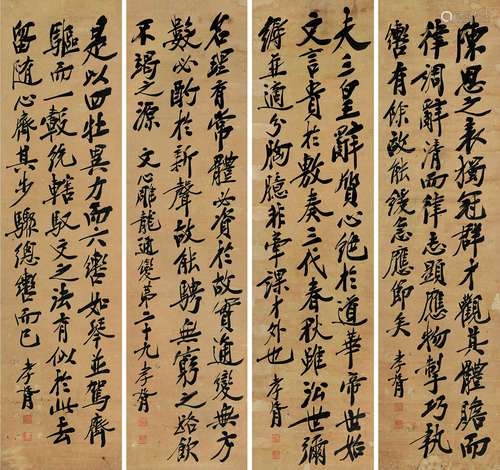 陳思之表獨冠群才觀其體贍而
律調辭清而志顯應物掣巧執
轡有餘故能緩急應節矣 孝胥
夫三皇辭質心絕於道華帝世始
文言貴於敷奏三代春秋雖沿世彌
縟並適分胸臆非牽課才外也 孝胥
名理有常體必資於故實通變無方
數必酌於新聲故能騁無窮之路飲
不竭之源 文心雕龍通變第二十九 孝胥
是以四牡異力而六轡如琴並駕齊
驅而一轂統轄馭文之法有似於此去
留隨心齊其步驟總轡而已 孝胥